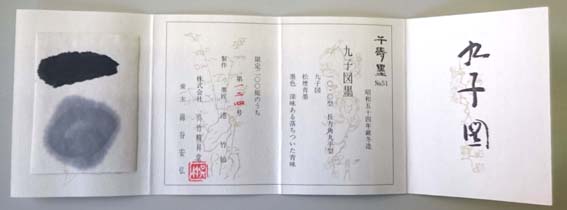 九子図
千寿墨 No.51
昭和五十四年厳冬造
九子図墨
一〇〇型 長方角丸手型
九子図
松煙青墨
墨色 深味ある落ちついた青味
限定二〇〇挺のうち
第一二四号
製作
株式会社 呉竹精昇堂
綿谷宏弘